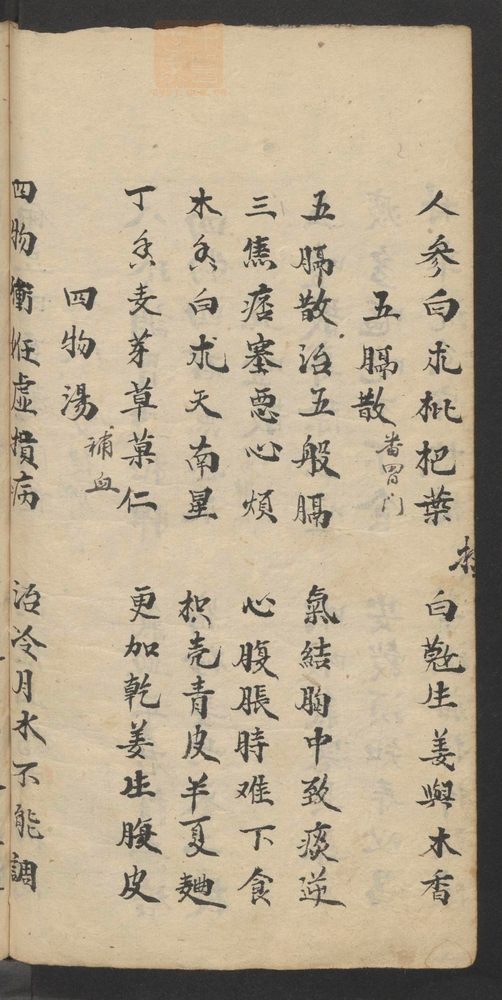 人參白朮枇杷葉 白蔻生姜與木香
五膈散 番胃门
五膈散治五般膈 氣結胸中致痰逆
三焦痞塞悪心煩 心腹脹時难下食
木香白朮天南星 枳壳青皮半夏麯
丁香麦芽草菓仁 更加乾姜生腹皮
四物湯 補血
四物衝任虛損病 治冷月水不能調